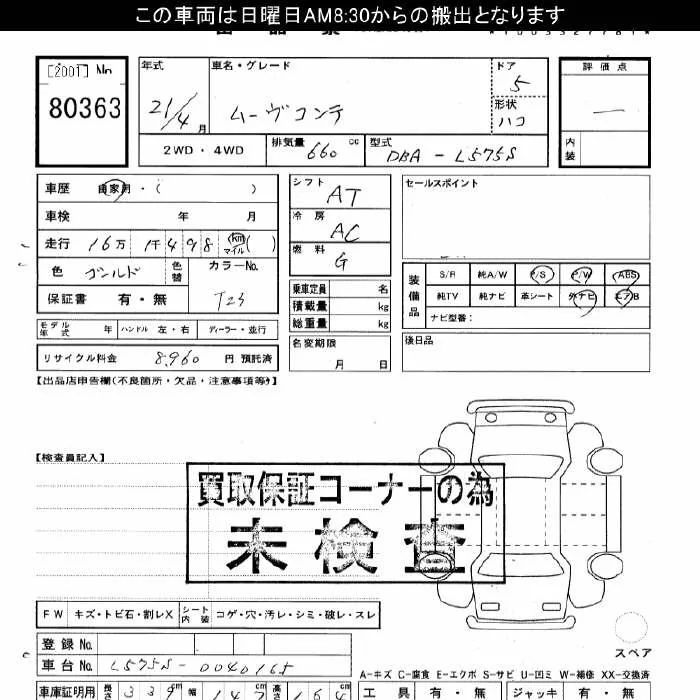 この車両は日曜日AM8:30からの搬出となります
[2001] No
80363
年式 21/4月
車名・グレード ムーヴコンテ
ドア 5
形状 ハコ
評価点 —
内装
2WD・4WD
排気量 660 cc
型式 DBA - L575S
車歴 自家用・( )
車検 年 月
走行 16万 1千498 km マイル ( )
色 ゴールド 色替 カラーNo. T23
保証書 有・無
モデル年式 年 ハンドル 左・右 ディーラー・並行
リサイクル料金 8,960 円 預託済
シフト AT
冷房 AC
燃料 G
乗車定員 名
積載量 kg
総重量 kg
名変期限 月 日
セールスポイント
装備品 S/R 純A/W P/S P/W ABS
純TV 純ナビ 革シート 外ナビ エアB
ナビ型番:
後日品
【出品店申告欄(不良箇所・欠品・注意事項等)】
【検査員記入】
買取保証コーナーの為
未検査
FW キズ・トビ石・割レX シート内装 コゲ・穴・汚レ・シミ・破レ・スレ
登録No.
車台No. L575S-0040165
スペア
A-キズ C-腐食 E-エクボ S-サビ U-凹ミ W-補修 XX-交換済
車庫証明用 長さ 339 幅 147 高さ 164
工具 有・無 ジャッキ 有・無